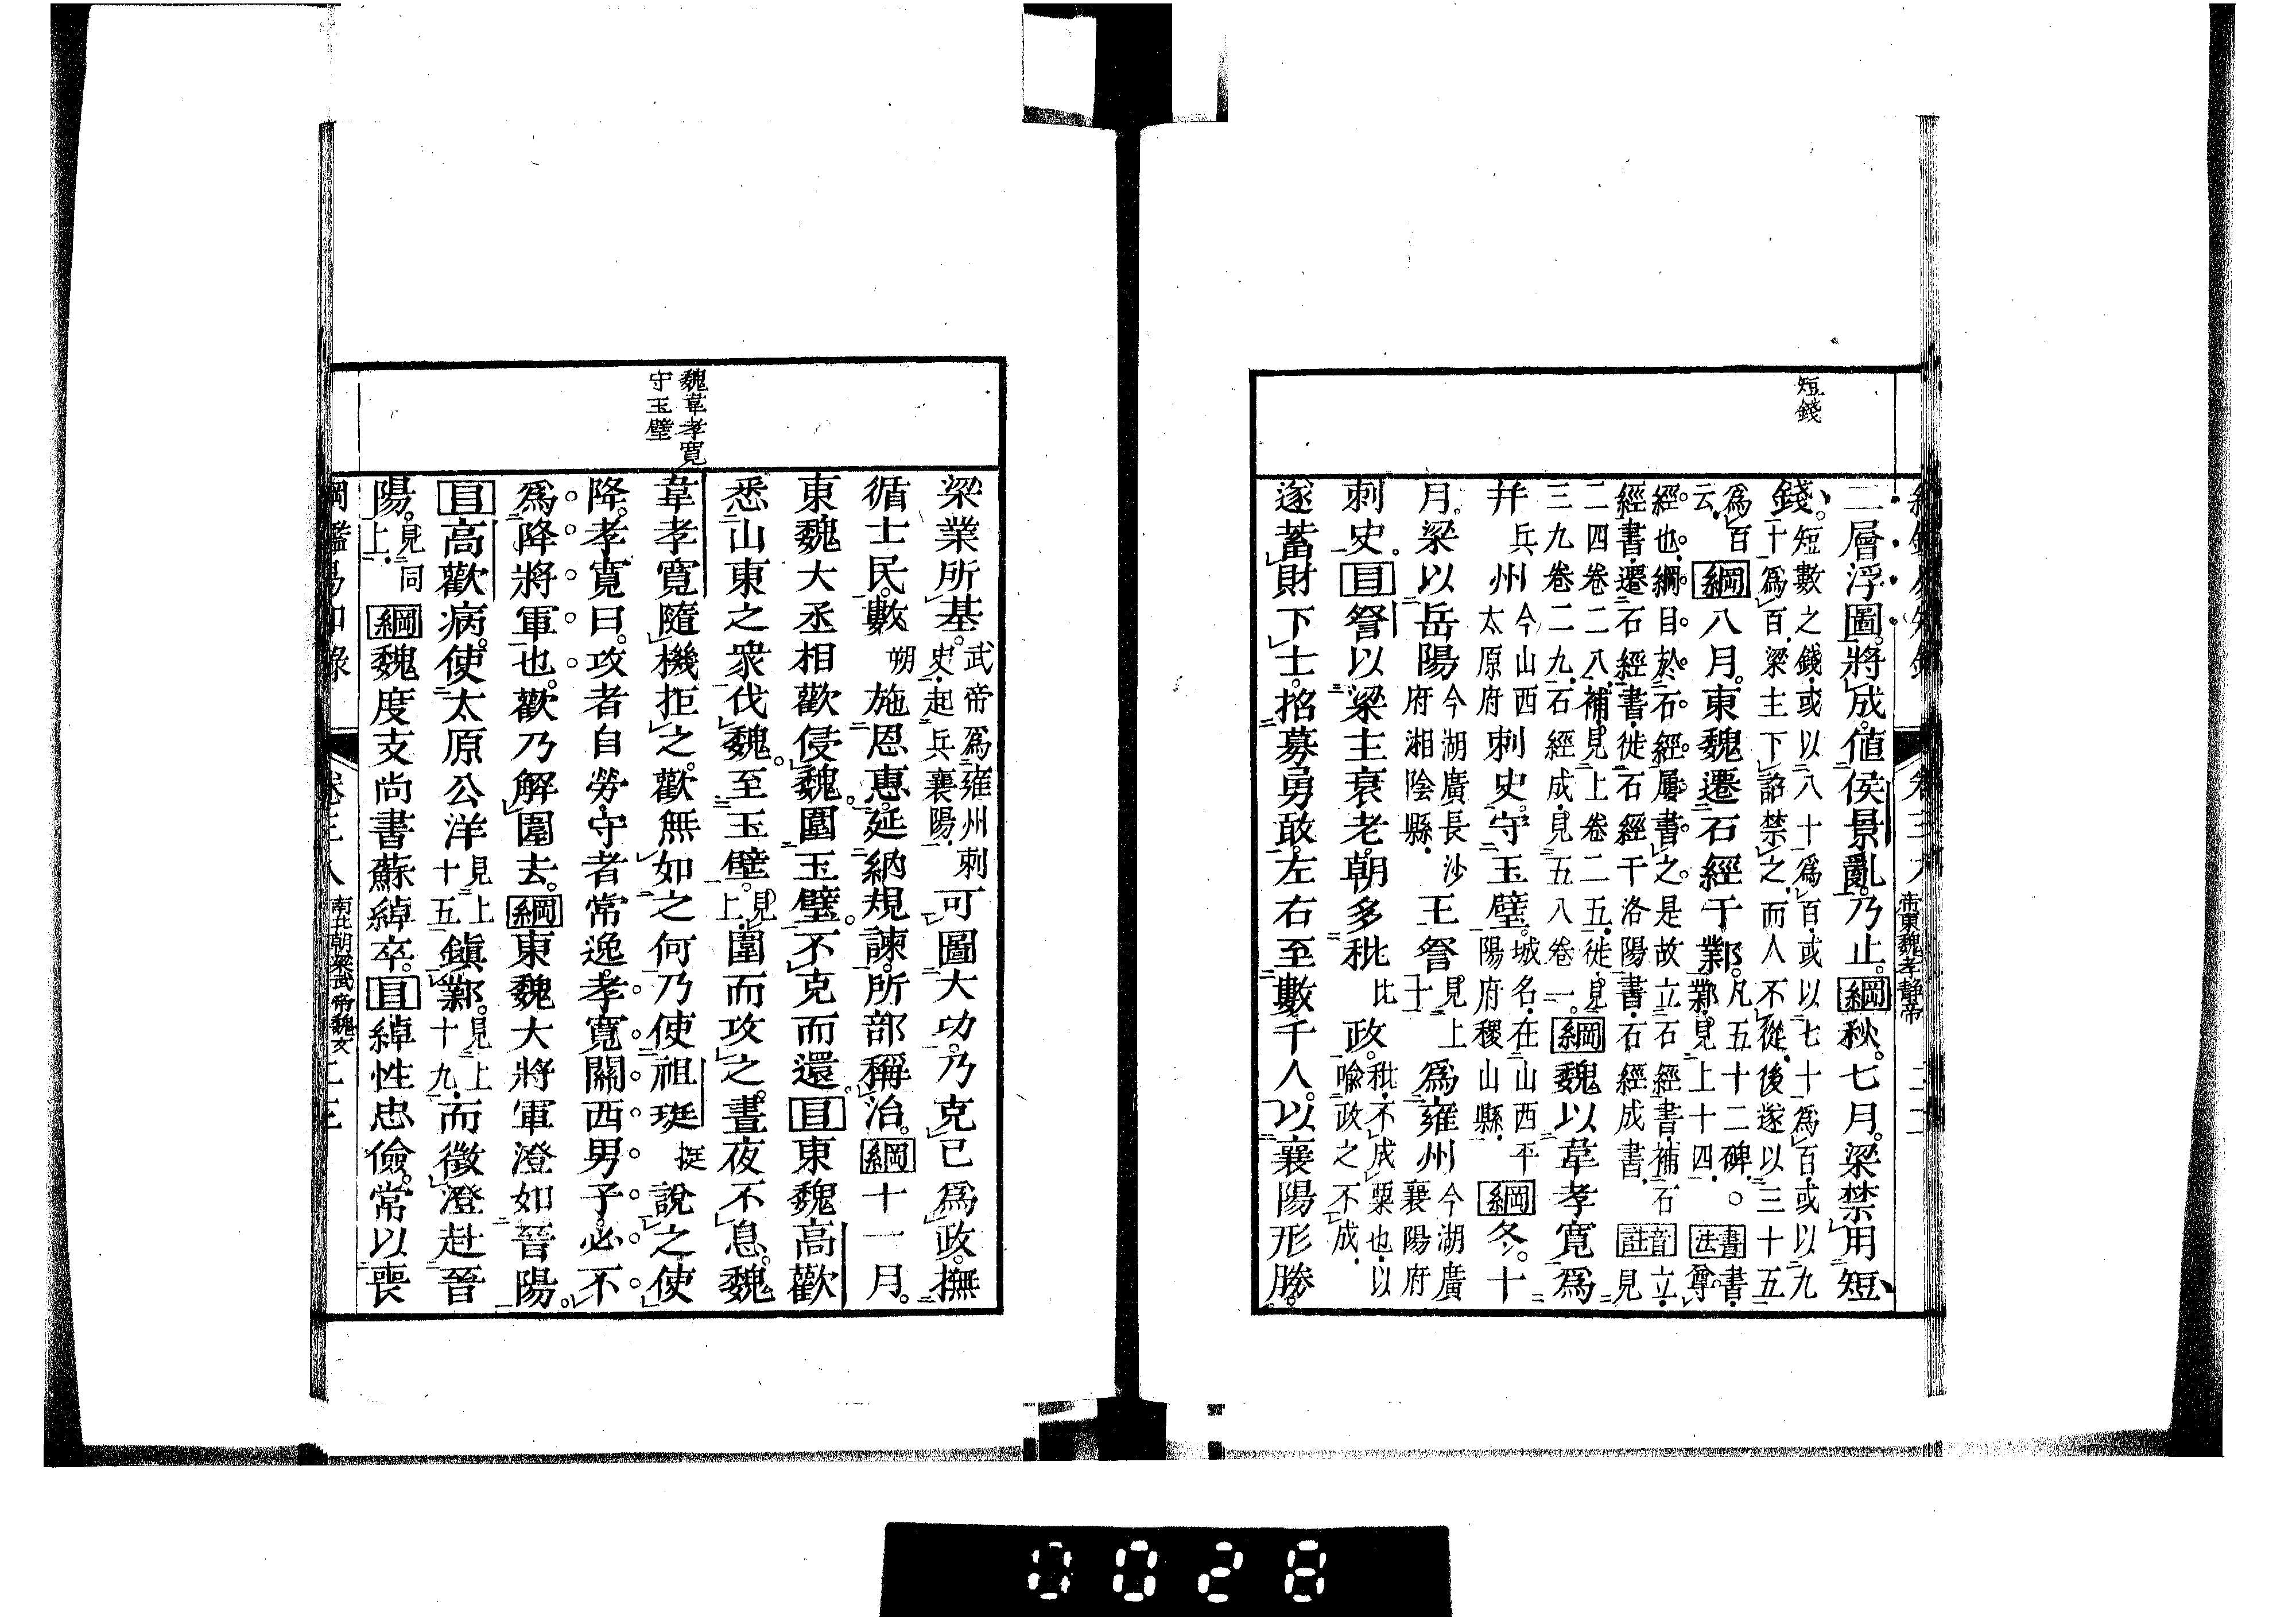 短錢
二層浮圖。將成。値侯景亂。乃止。綱秋。七月。梁禁用短
錢。短數之錢。或以八十爲百。或以七十爲百。或以九
十爲百。梁主下詔禁之。而人不從。後遂以三十五
爲百
云。綱八月。東魏遷石經于鄴。凡五十二碑。○書法書。尊
鄴。見上十四。
經也。綱目於石經屢書之。是故立石經書。補石
經書。遷石經書。徙石經于洛陽書。石經成書。音註立。見
二四卷二八。補。見上卷二五。徙。見
三九卷二九。石經成。見五八卷一。綱魏以韋孝寬爲
幷兵州今山西太原府刺史。守玉壁。城名。在山西平陽府稷山縣。綱冬。十
月。梁以岳陽今湖廣長沙府湘陰縣。王詧。見上十一爲雍州今湖廣襄陽府
刺史。目詧以梁主衰老。朝多秕比政。秕。不成粟也。以喩政之不成。
遂蓄財下士。招募勇敢。左右至數千人。以襄陽形勝。
帝東魏孝靜帝
魏韋孝寬
守玉壁
梁業所基。武帝爲雍州刺史。起兵襄陽。可圖大功。乃克己爲政。撫
循士民。數朔施恩惠。延納規諫。所部稱治。綱十一月。
東魏大丞相歡侵魏。圍玉壁。不克而還。目東魏高歡
悉山東之衆伐魏。至玉壁。見上。圍而攻之。晝夜不息。魏
韋孝寬隨機拒之。歡無如之何。乃使祖珽挺說之使
降。孝寬曰。攻者自勞。守者常逸。孝寬關西男子。必不
爲降將軍也。歡乃解圍去。綱東魏大將軍澄如晉陽。
目高歡病。使太原公洋見上十五鎭鄴。見上十九。而徵澄赴晉
陽。見同上。綱魏度支尚書蘇綽卒。目綽性忠儉。常以喪
綱鑑易知錄 卷三八 南北朝梁武帝魏文 二三
0028